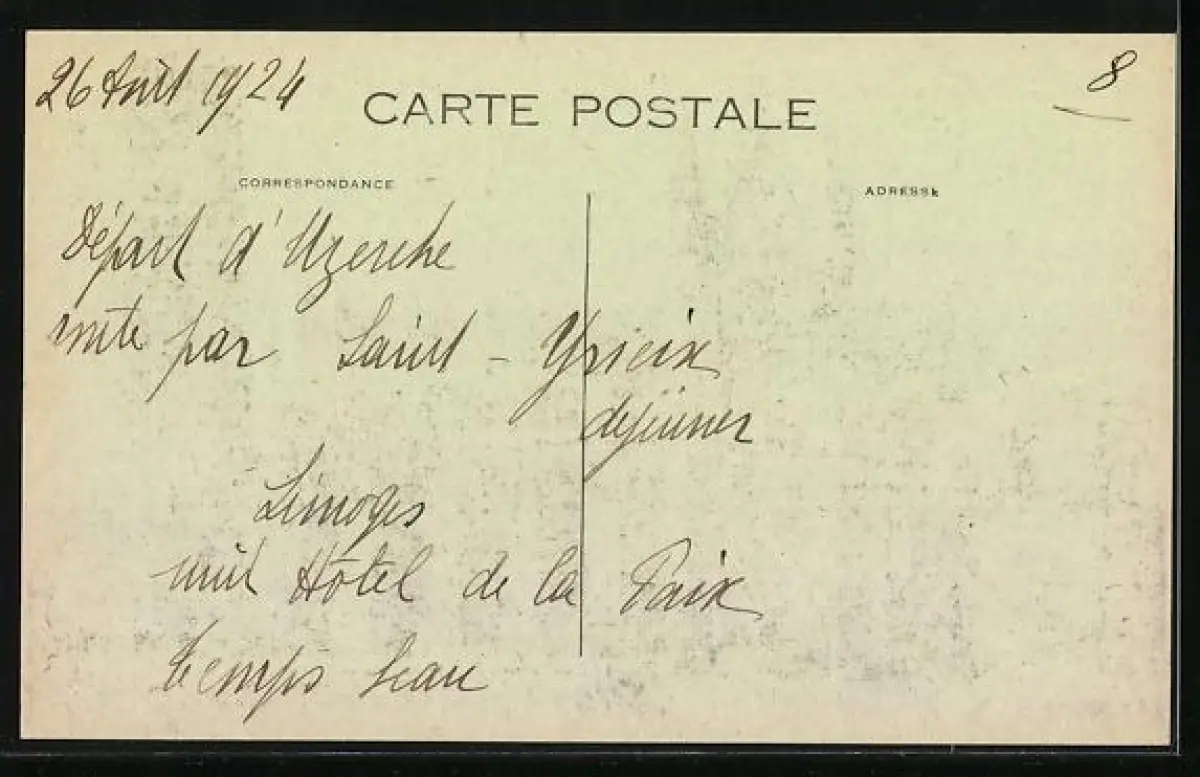 26 Août 1924
8
CARTE POSTALE
CORRESPONDANCE
ADRESSE
Départ d'Uzerche
route par Saint - Yrieix
déjeuner
Limoges
nuit Hôtel de la Paix
temps beau